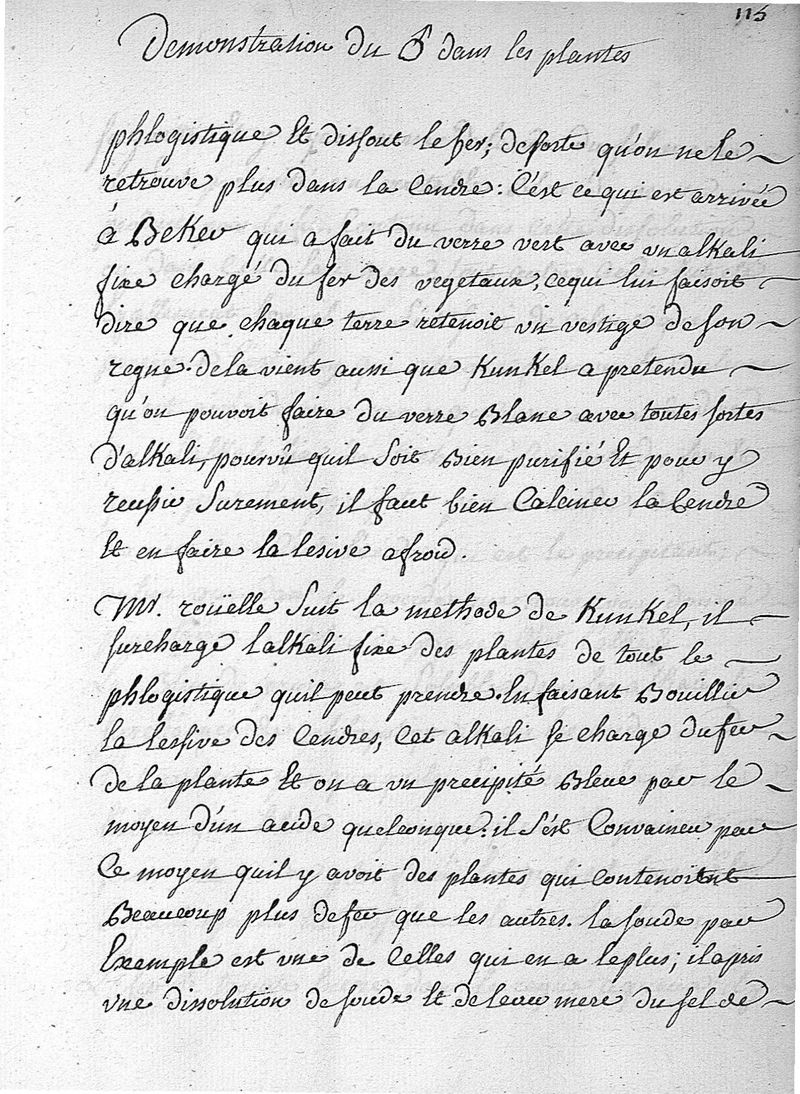 115
Demonstration du ♂ dans les plantes
phlogistique Et dissout le fer; desorte qu'on ne le
retrouve plus dans la Cendre: C'est ce qui est arrivée
à BeKer qui a fait du verre vert avec un alkali
fixe chargé du fer des vegetaux, cequi lui faisoit
dire que chaque terre retenoit un vestige de son
regne. de la vient aussi que KunKel a pretendu
qu'on pouvoit faire du verre Blanc avec toutes sortes
d'alkali, pourvû quil soit Bien purifié Et pour y
reussir Surement, il faut bien Calciner la Cendre
Et en faire la lesive a froid.
Mr. roüelle Suit la methode de KunKel, il
surcharge l'alkali fixe des plantes de tout le
phlogistique quil peut prendre. En faisant Bouillir
la lessive des Cendres, Cet alkali se charge du fer
de la plante Et on a un precipité Bleue par le
moyen d'un acide quelconque: il S'est Convaincu par
Ce moyen quil y avoit des plantes qui contenoient
Beaucoup plus de fer que les autres. la soude par
Exemple est une de Celles qui en a le plus; il a pris
une dissolution de soude Et de l'eau mere du sel de